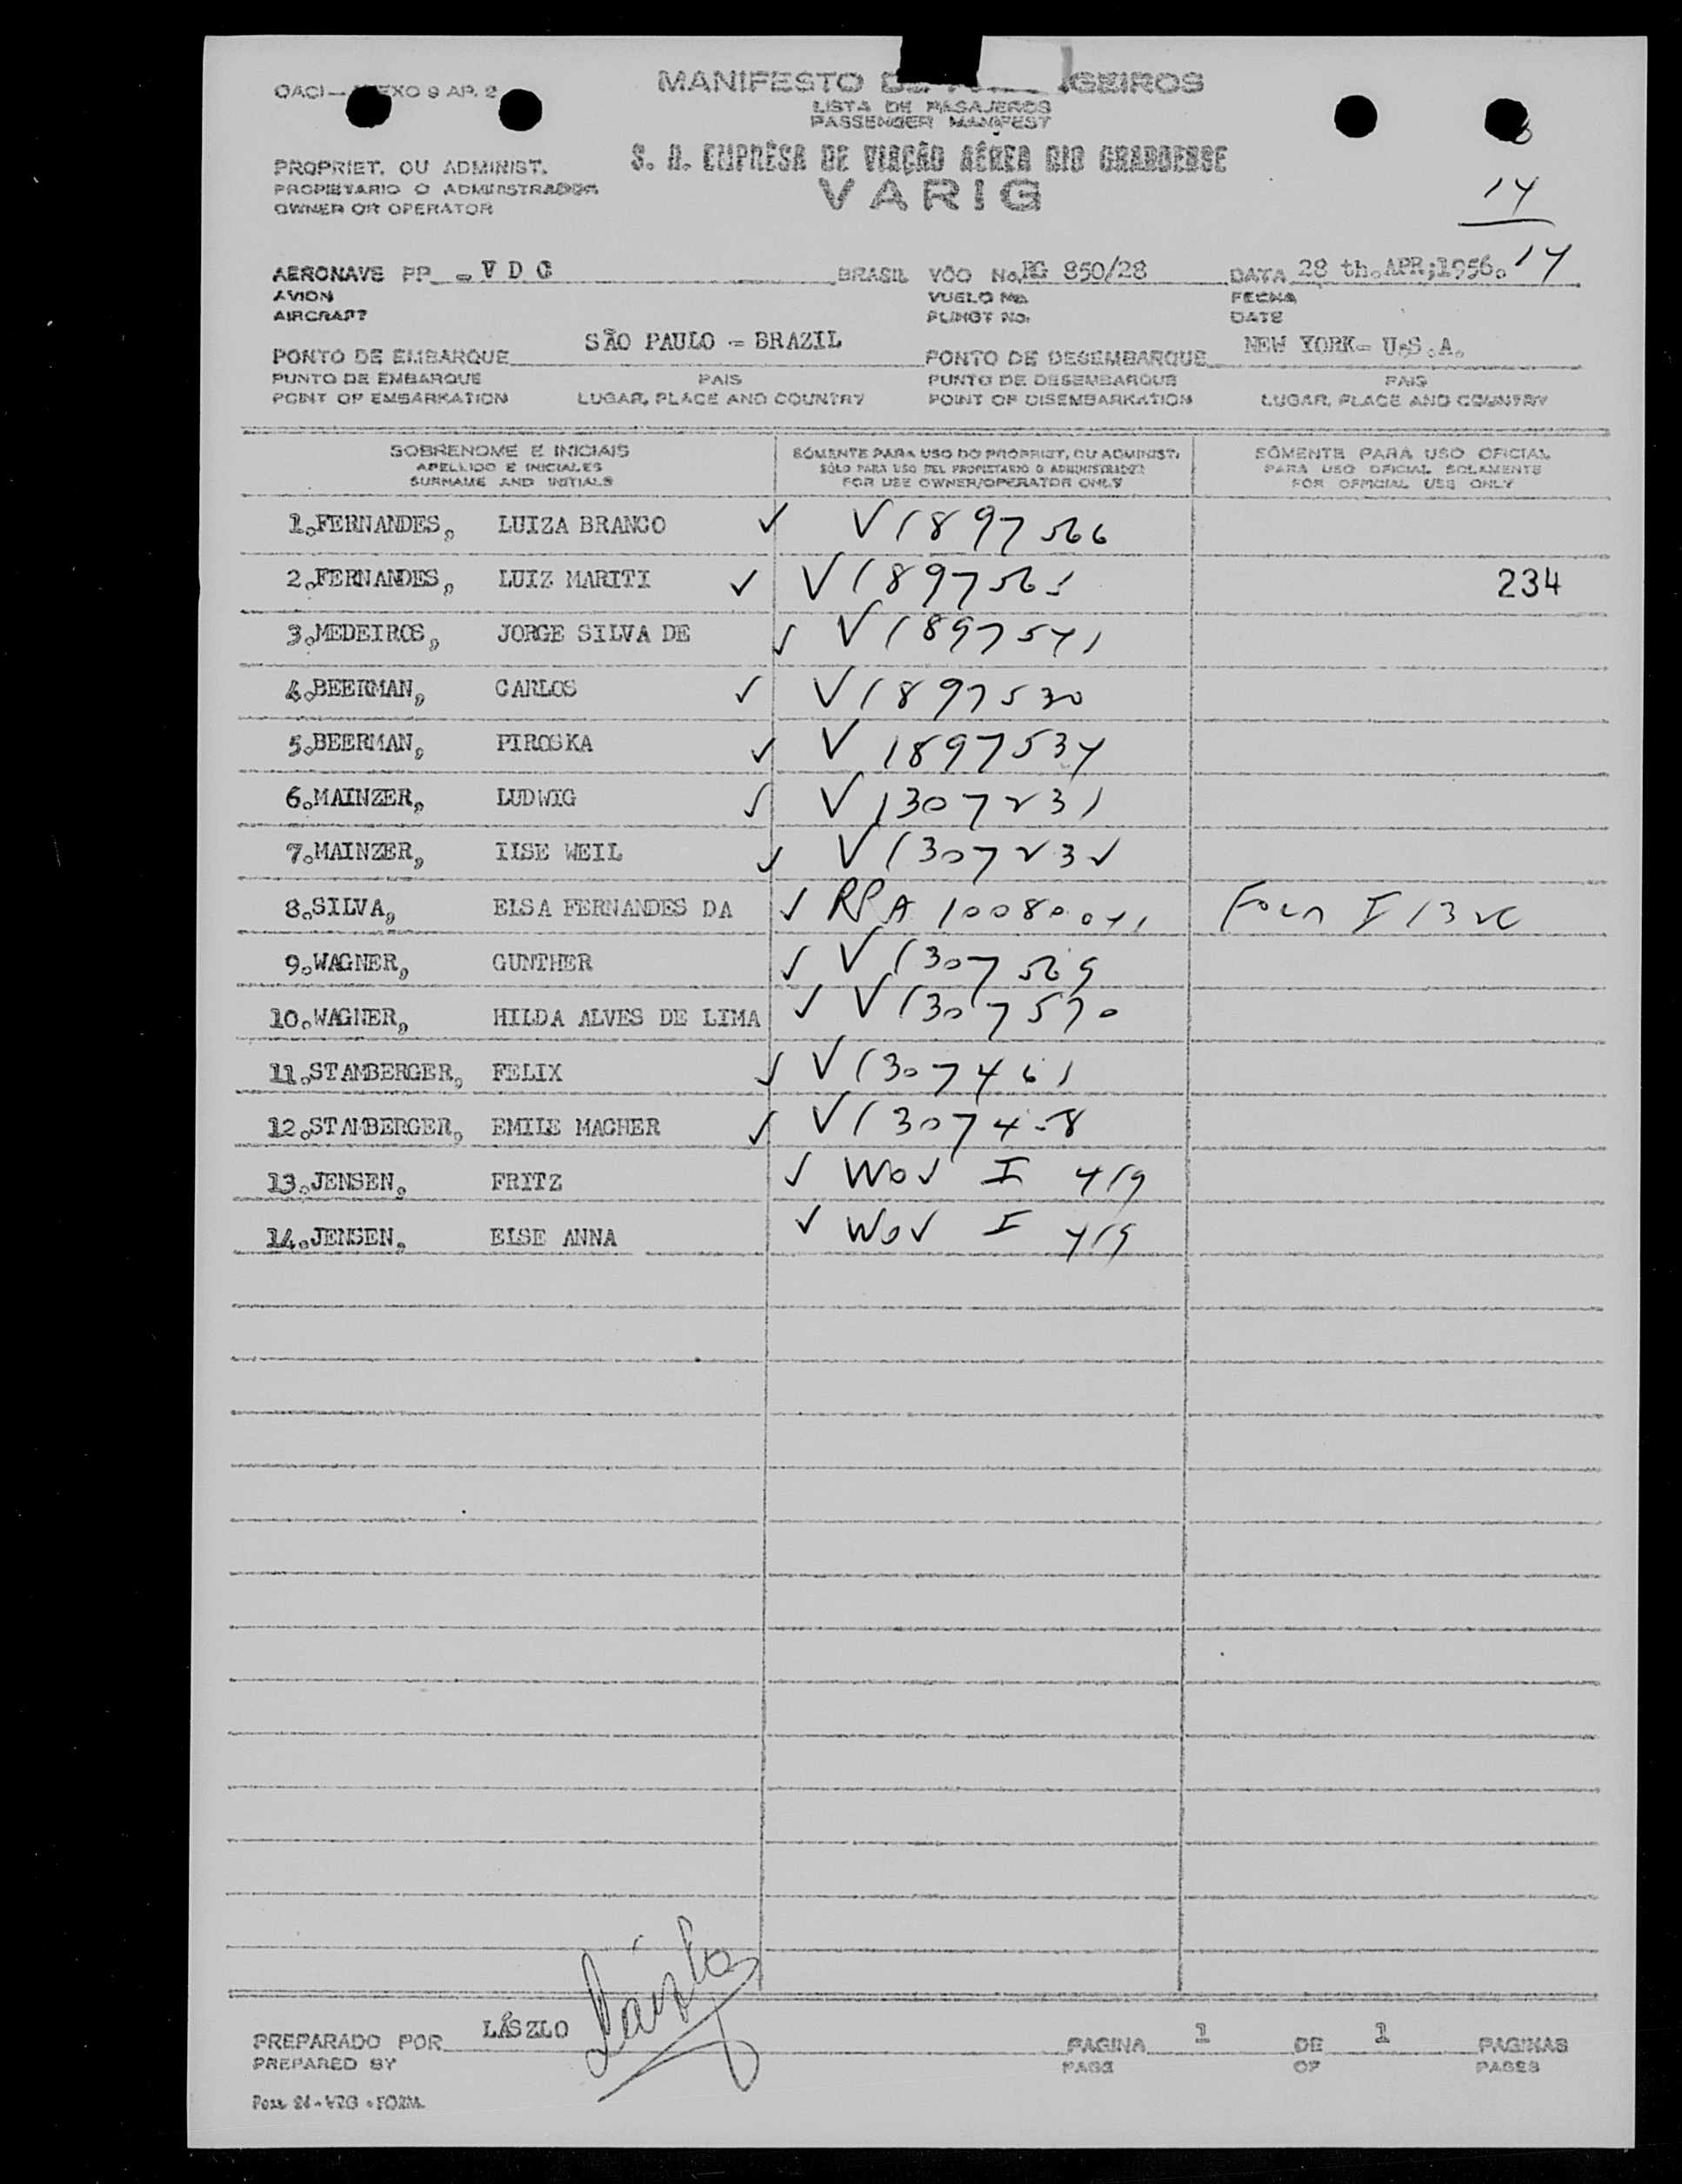 OACI — EXO 9 AP. 2
MANIFESTO DE GEIROS
LISTA DE PASAJEROS
PASSENGER MANIFEST
PROPRIET. OU ADMINIST.
PROPIETARIO O ADMINISTRADOR
OWNER OR OPERATOR
S. A. EMPRÊSA DE VIAÇÃO AÉREA RIO GRANDENSE
VARIG
14
14
AERONAVE PP - V D C BRASIL VÔO No. RG 850/28 DATA 28 th. APR;1956.
AVION VUELO No. FECHA
AIRCRAFT FLIHGT No. DATE
PONTO DE EMBARQUE SÃO PAULO - BRAZIL PONTO DE DESEMBARQUE NEW YORK- U.S.A.
PUNTO DE EMBARQUE PAIS PUNTO DE DESEMBARQUE PAIS
POINT OF EMBARKATION LUGAR, PLACE AND COUNTRY POINT OF DISEMBARKATION LUGAR, PLACE AND COUNTRY
SOBRENOME E INICIAIS SÓMENTE PARA USO DO PROPRIET, OU ADMINIST. SÓMENTE PARA USO OFICIAL
APELLIDO E INICIALES SÓLO PARA USO DEL PROPIETARIO O ADMINISTRADOR PARA USO OFICIAL SOLAMENTE
SURNAME AND INITIALS FOR USE OWNER/OPERATOR ONLY FOR OFFICIAL USE ONLY
1.FERNANDES, LUIZA BRANCO ✓ V1897566
2.FERNANDES, LUIZ MARITI ✓ V1897565 234
3.MEDEIROS, JORGE SILVA DE ✓ V1897541
4.BEERMAN, CARLOS ✓ V1897530
5.BEERMAN, PIROSKA ✓ V 1897534
6.MAINZER, LUDWIG ✓ V1307231
7.MAINZER, IISE WEIL ✓ V1307232
8.SILVA, ELSA FERNANDES DA ✓ RPA 10080041
9.WAGNER, GUNTHER ✓ V1307569
10.WAGNER, HILDA ALVES DE LIMA ✓ V1307570
11.STAMBERGER, FELIX ✓ V1307461
12.STAMBERGER, EMILE MACHER ✓
13.JENSEN, FRITZ ✓ WOV I 419
14.JENSEN, ELSE ANNA ✓ WOV I 419
PREPARADO POR LÁSZLO László PAGINA 1 DE 1 PAGINAS
PREPARED BY PAGE OF PAGES